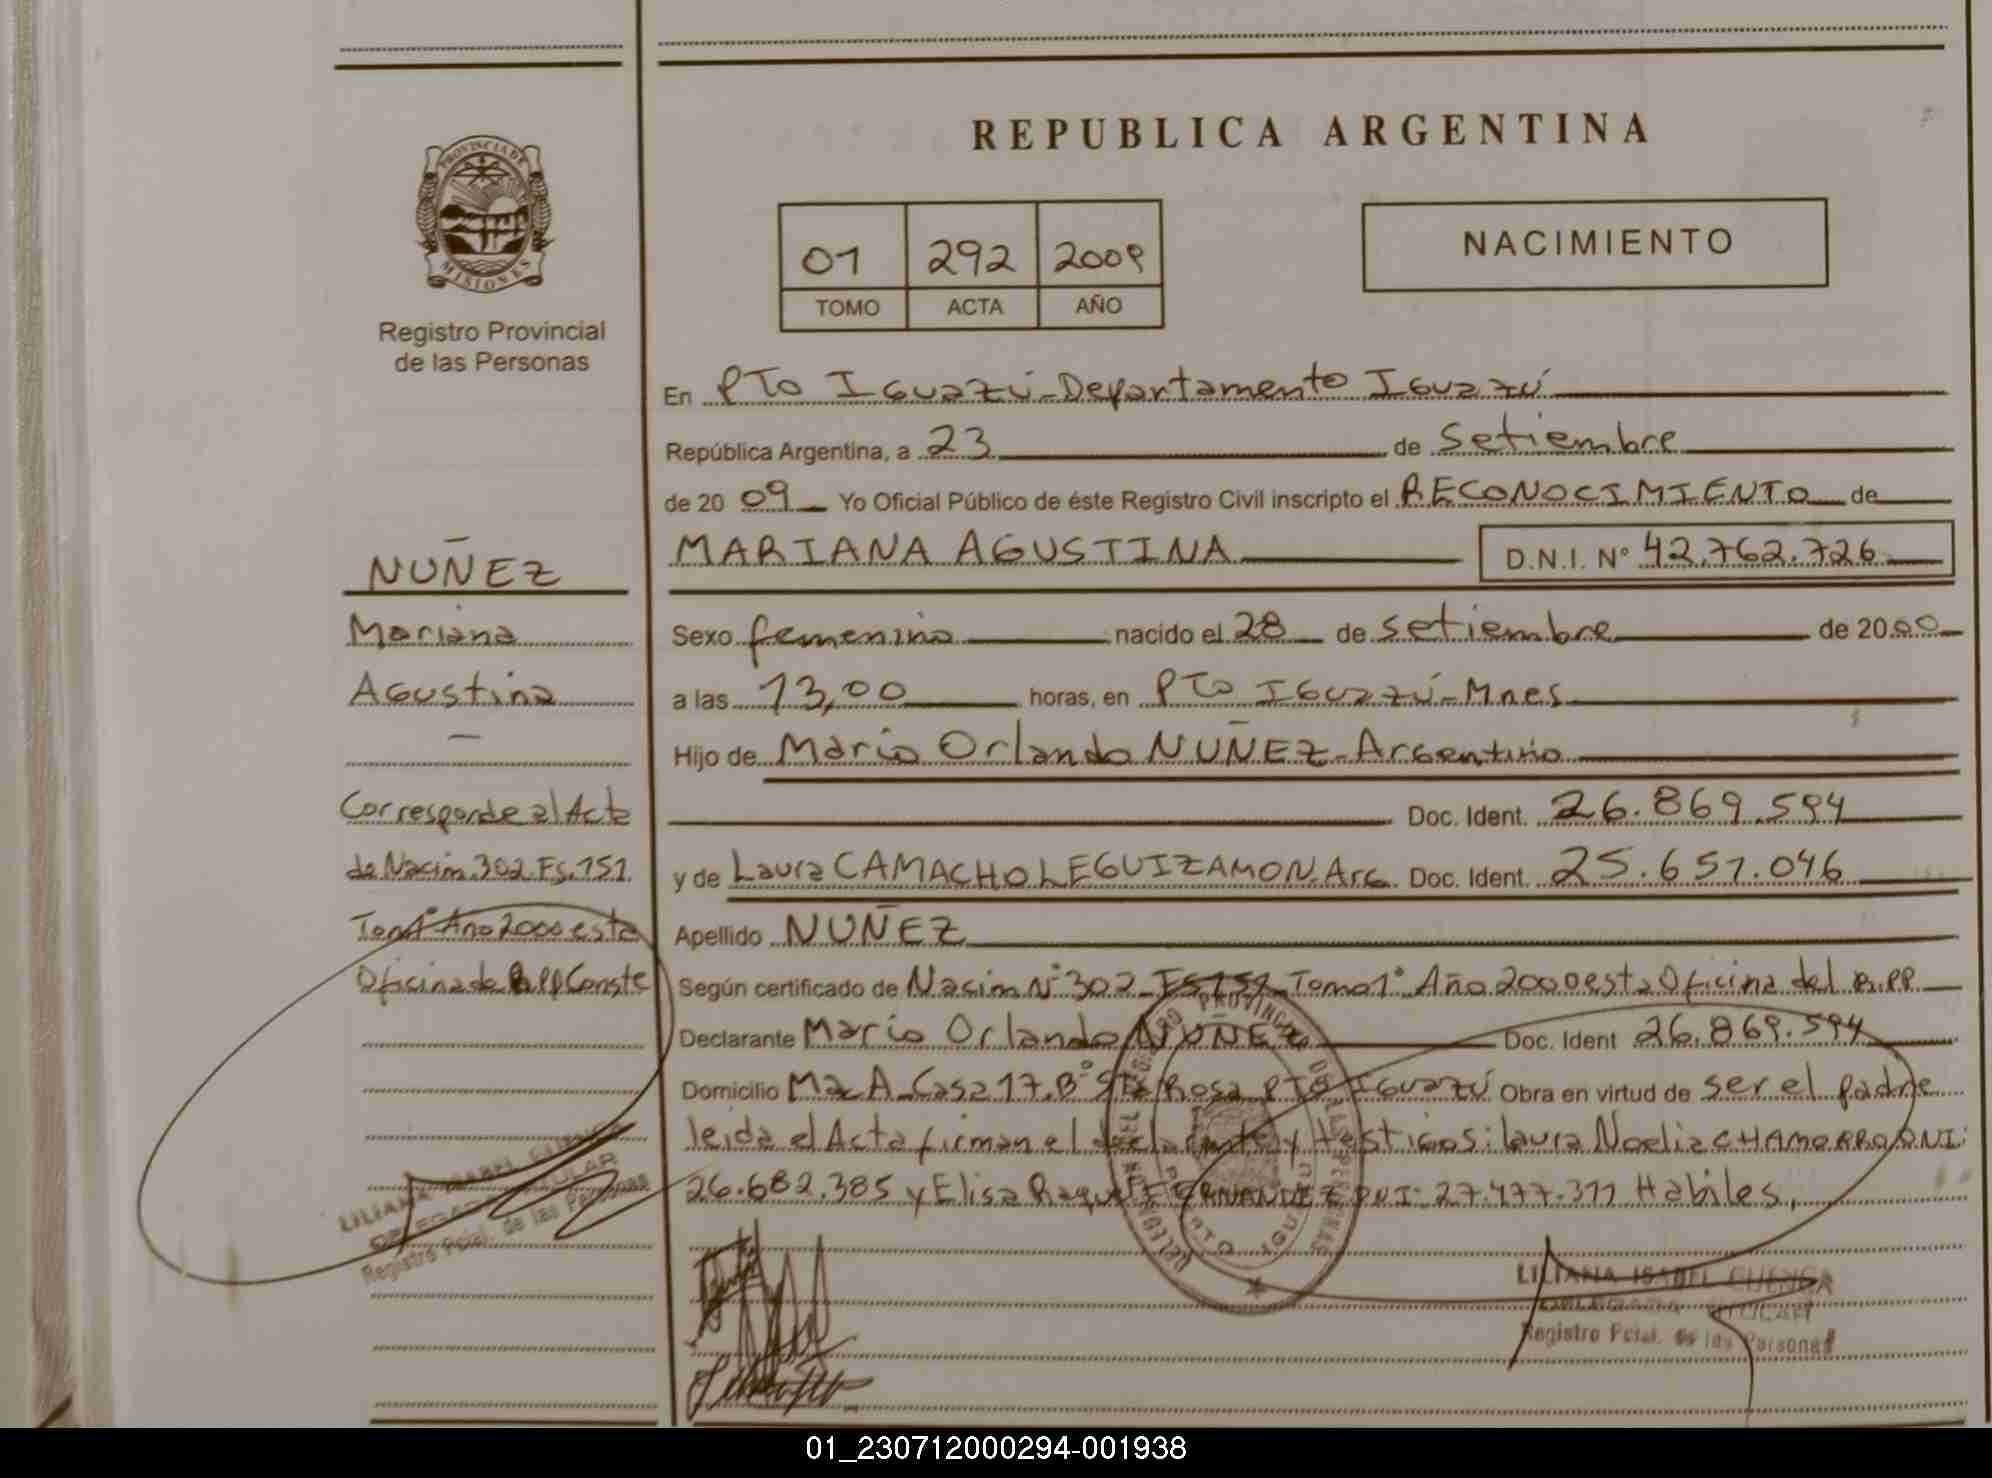 REPUBLICA ARGENTINA
PROVINCIA DE
MISIONES
Registro Provincial
de las Personas
01 292 2009
TOMO ACTA AÑO
NACIMIENTO
En PTO Iguazú-Departamento Iguazú
República Argentina, a 23 de Setiembre
de 20 09 Yo Oficial Público de éste Registro Civil inscripto el RECONOCIMIENTO de
MARIANA AGUSTINA D.N.I. N° 42.762.726
Sexo femenino nacido el 28 de setiembre de 20 00
a las 13,00 horas, en PTO Iguazú-Mnes
Hijo de Mario Orlando NUÑEZ-Argentino
Doc. Ident. 26.869.594
y de Laura CAMACHO LEGUIZAMON.Arg. Doc. Ident. 25.657.046
Apellido NUÑEZ
Según certificado de Nacim N° 302-Fs 151-Tomo 1° Año 2000 esta Oficina del R.PP
Declarante Mario Orlando NUÑEZ Doc. Ident 26.869.594
Domicilio Mz A-Casa 17.B° Sta Rosa PTO Iguazú Obra en virtud de ser el padre
leida el Acta firman el declarante y testigos: laura Noelia CHAMORRO DNI:
26.682.385 y Elisa Raquel FERNANDEZ DNI: 27.477.311 Habiles,
NUÑEZ
Mariana
Agustina
Corresponde al Acta
de Nacim.302.Fs.151.
Tomo 1° Año 2000 esta
Oficina de R.PP Conste
LILIANA ISABEL CUENCA
DELEGADA TITULAR
Registro Pcial. de las Personas
LILIANA ISABEL CUENCA
DELEGADA TITULAR
Registro Pcial. de las Personas
01_230712000294-001938